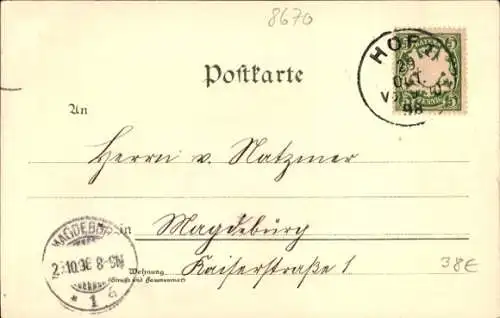 8670
HOF
29
OKT.
98
5 5
Postkarte
An
Herrn v. Natzmer
in Magdebürg
MAGDEBURG
8-9N
* 1
Wohnung
(Straße und Hausnummer)
Kaiserstraße 1.
38€